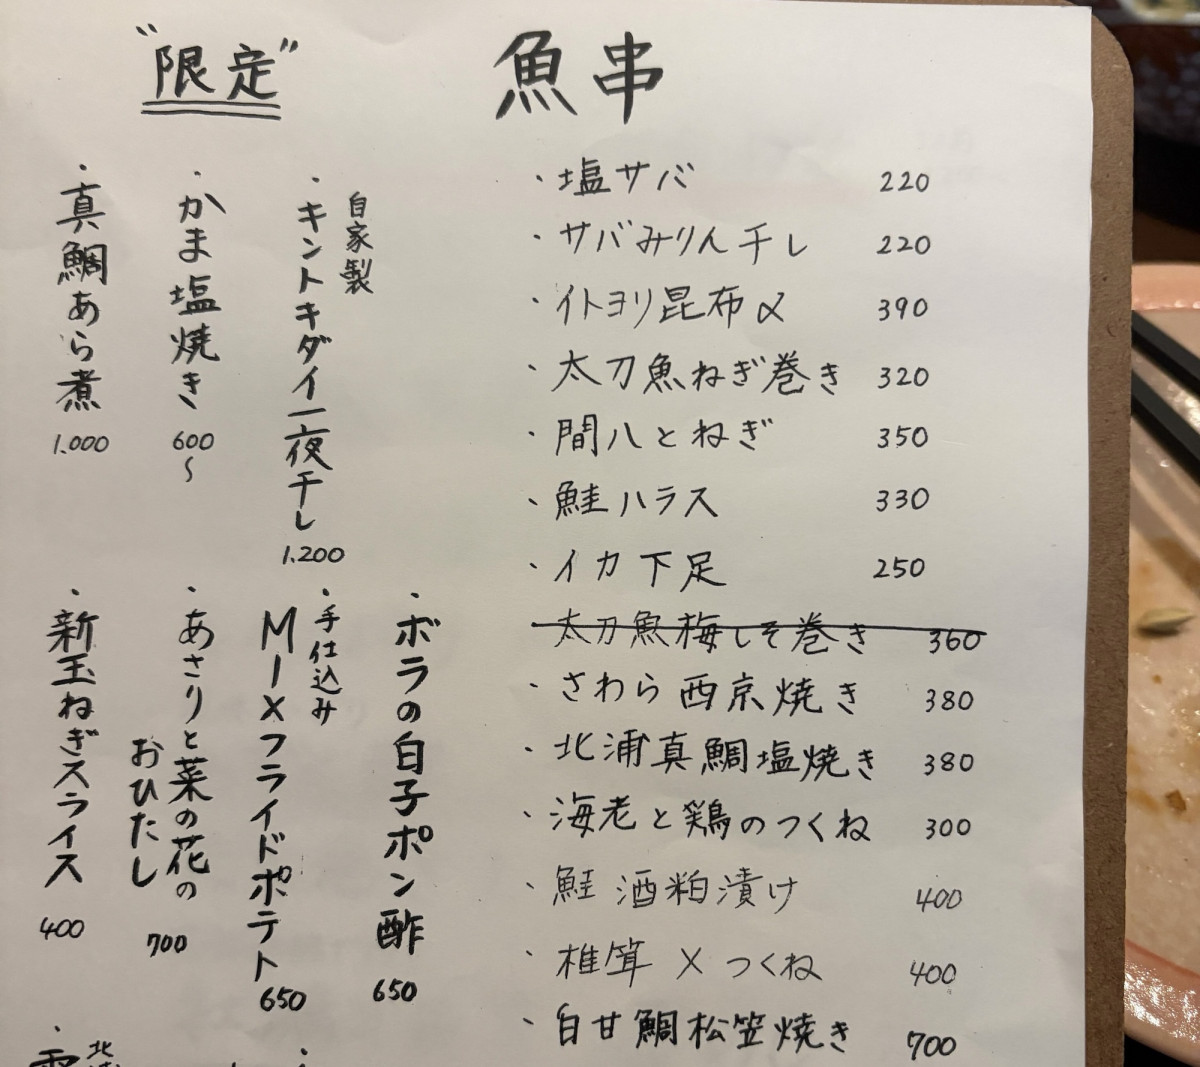 魚串
・塩サバ 220
・サバみりん干し 220
・イトヨリ昆布〆 390
・太刀魚ねぎ巻き 320
・間八とねぎ 350
・鮭ハラス 330
・イカ下足 250
太刀魚梅しそ巻き 360
・さわら西京焼き 380
・北浦真鯛塩焼き 380
・海老と鶏のつくね 300
・鮭酒粕漬け 400
・椎茸×つくね 400
・白甘鯛松笠焼き 700
"限定"
自家製
・キントキダイ一夜干し 1.200
・かま塩焼き 600〜
・真鯛あら煮 1.000
・ボラの白子ポン酢 650
・手仕込み
MIXフライドポテト 650
・あさりと菜の花の
おひたし 700
・新玉ねぎスライス 400
北